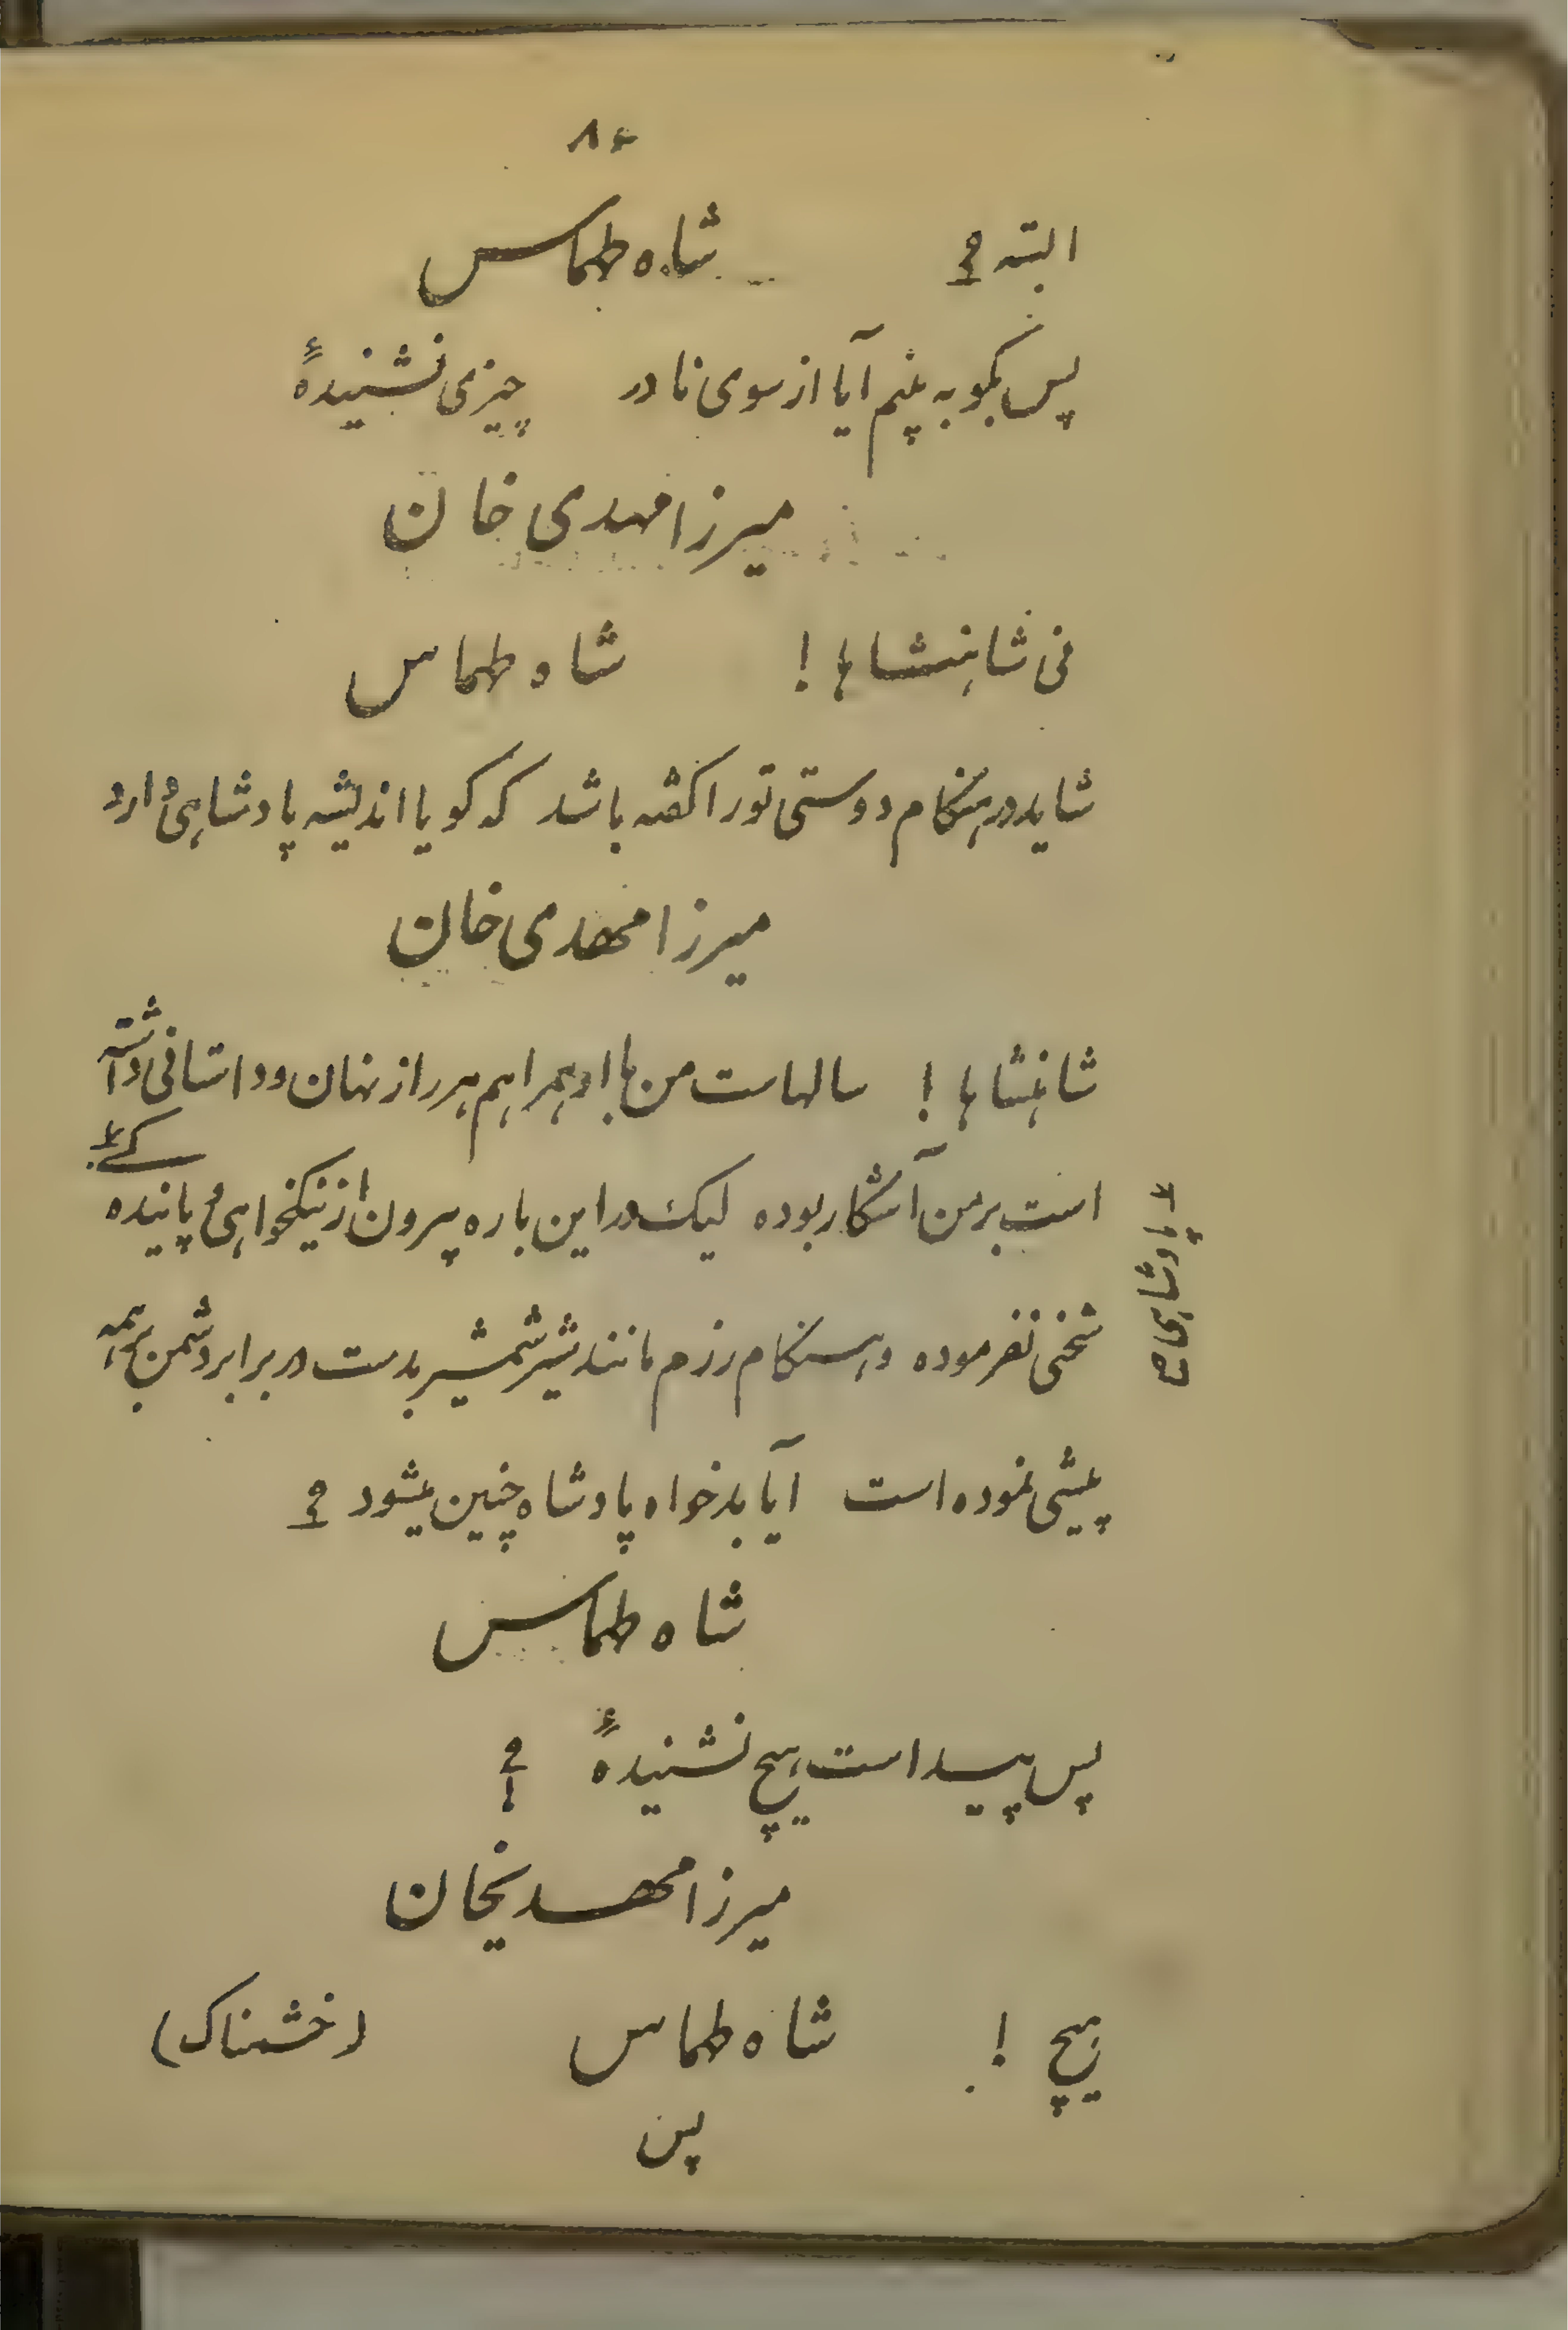 ۸۴
البته ؟ شاه طهماس
پس بگو به بینم آیا از سوی نادر چیزی نشنیدهٔ
میرزا مهدی خان
نی شاهنشاها ! شاه طهماس
شاید در هنگام دوستی تو را گفته باشد که گویا اندیشه پادشاهی دارد
میرزا مهدی خان
شاهنشاها ! سالهاست من با او همراهم هر راز نهان و داستانی داشته
است بر من آشکار بوده لیک در این باره بیرون از نیکخواهی و پاینده گی *
* پادشاهی
سخنی نفرموده و هنگام رزم مانند شیر شمشیر بدست در برابر دشمن بر همه
پیشی نموده است آیا بدخواه پادشاه چنین میشود ؟
شاه طهماس
پس پیداست هیچ نشنیدهٔ ؟!
میرزا مهدیخان
هیچ ! شاه طهماس (خشمناک)
پس